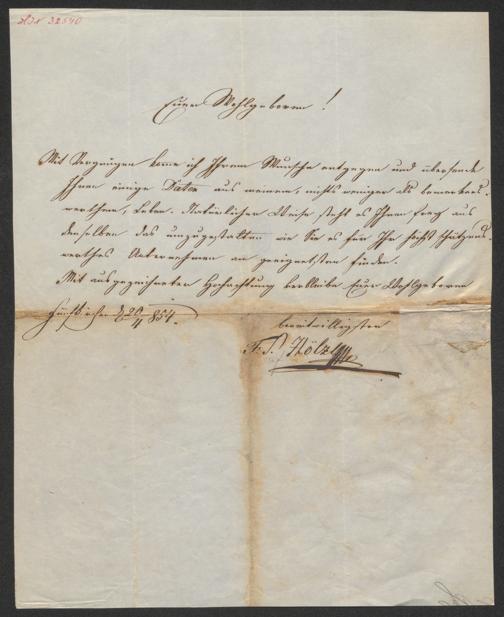 HIN 32540
Euer Wohlgeboren!
Mit Vergnügen komme ich Ihrem Wunsche entgegen und übersende
Ihnen einige Daten aus meinem, nichts weniger als bemerkens-
werthen, Leben. Natürlicher Weise steht es Ihnen frey aus
denselben das umzugestalten wie Sie es für Ihr höchst schätzens-
werthes Unternehmen am geeignetsten finden.
Mit ausgezeichneter Hochachtung verbleibe Euer Wohlgeboren
Fünfkirchen d 20/4 854.
bereitwilligster
F. S. Hölzl